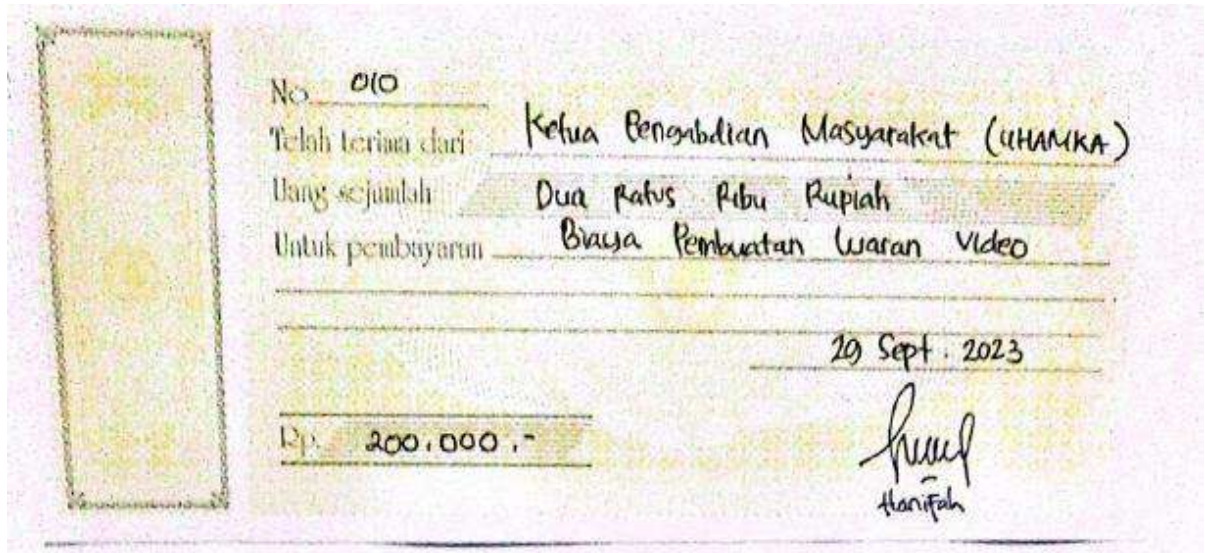 No. 010
Telah terima dari Ketua Pengabdian Masyarakat (UHAMKA)
Uang sejumlah Dua Ratus Ribu Rupiah
Untuk pembayaran Biaya Pembuatan Luaran Video
29 Sept. 2023
Rp. 200.000.-
Hanifah